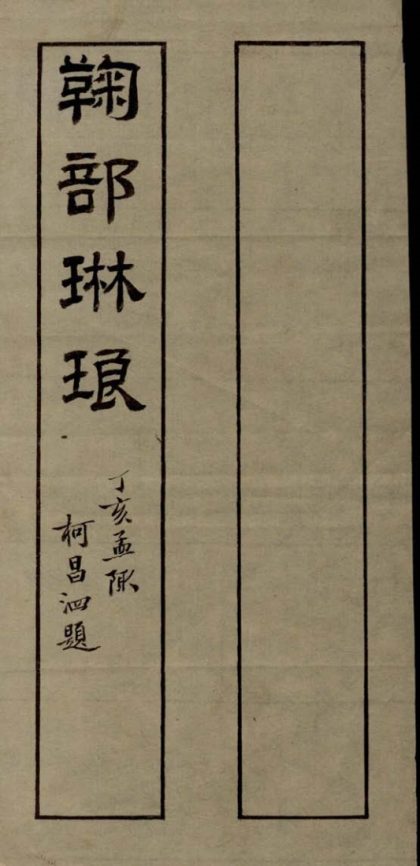 鞠部琳琅
丁亥孟陬
柯昌泗題